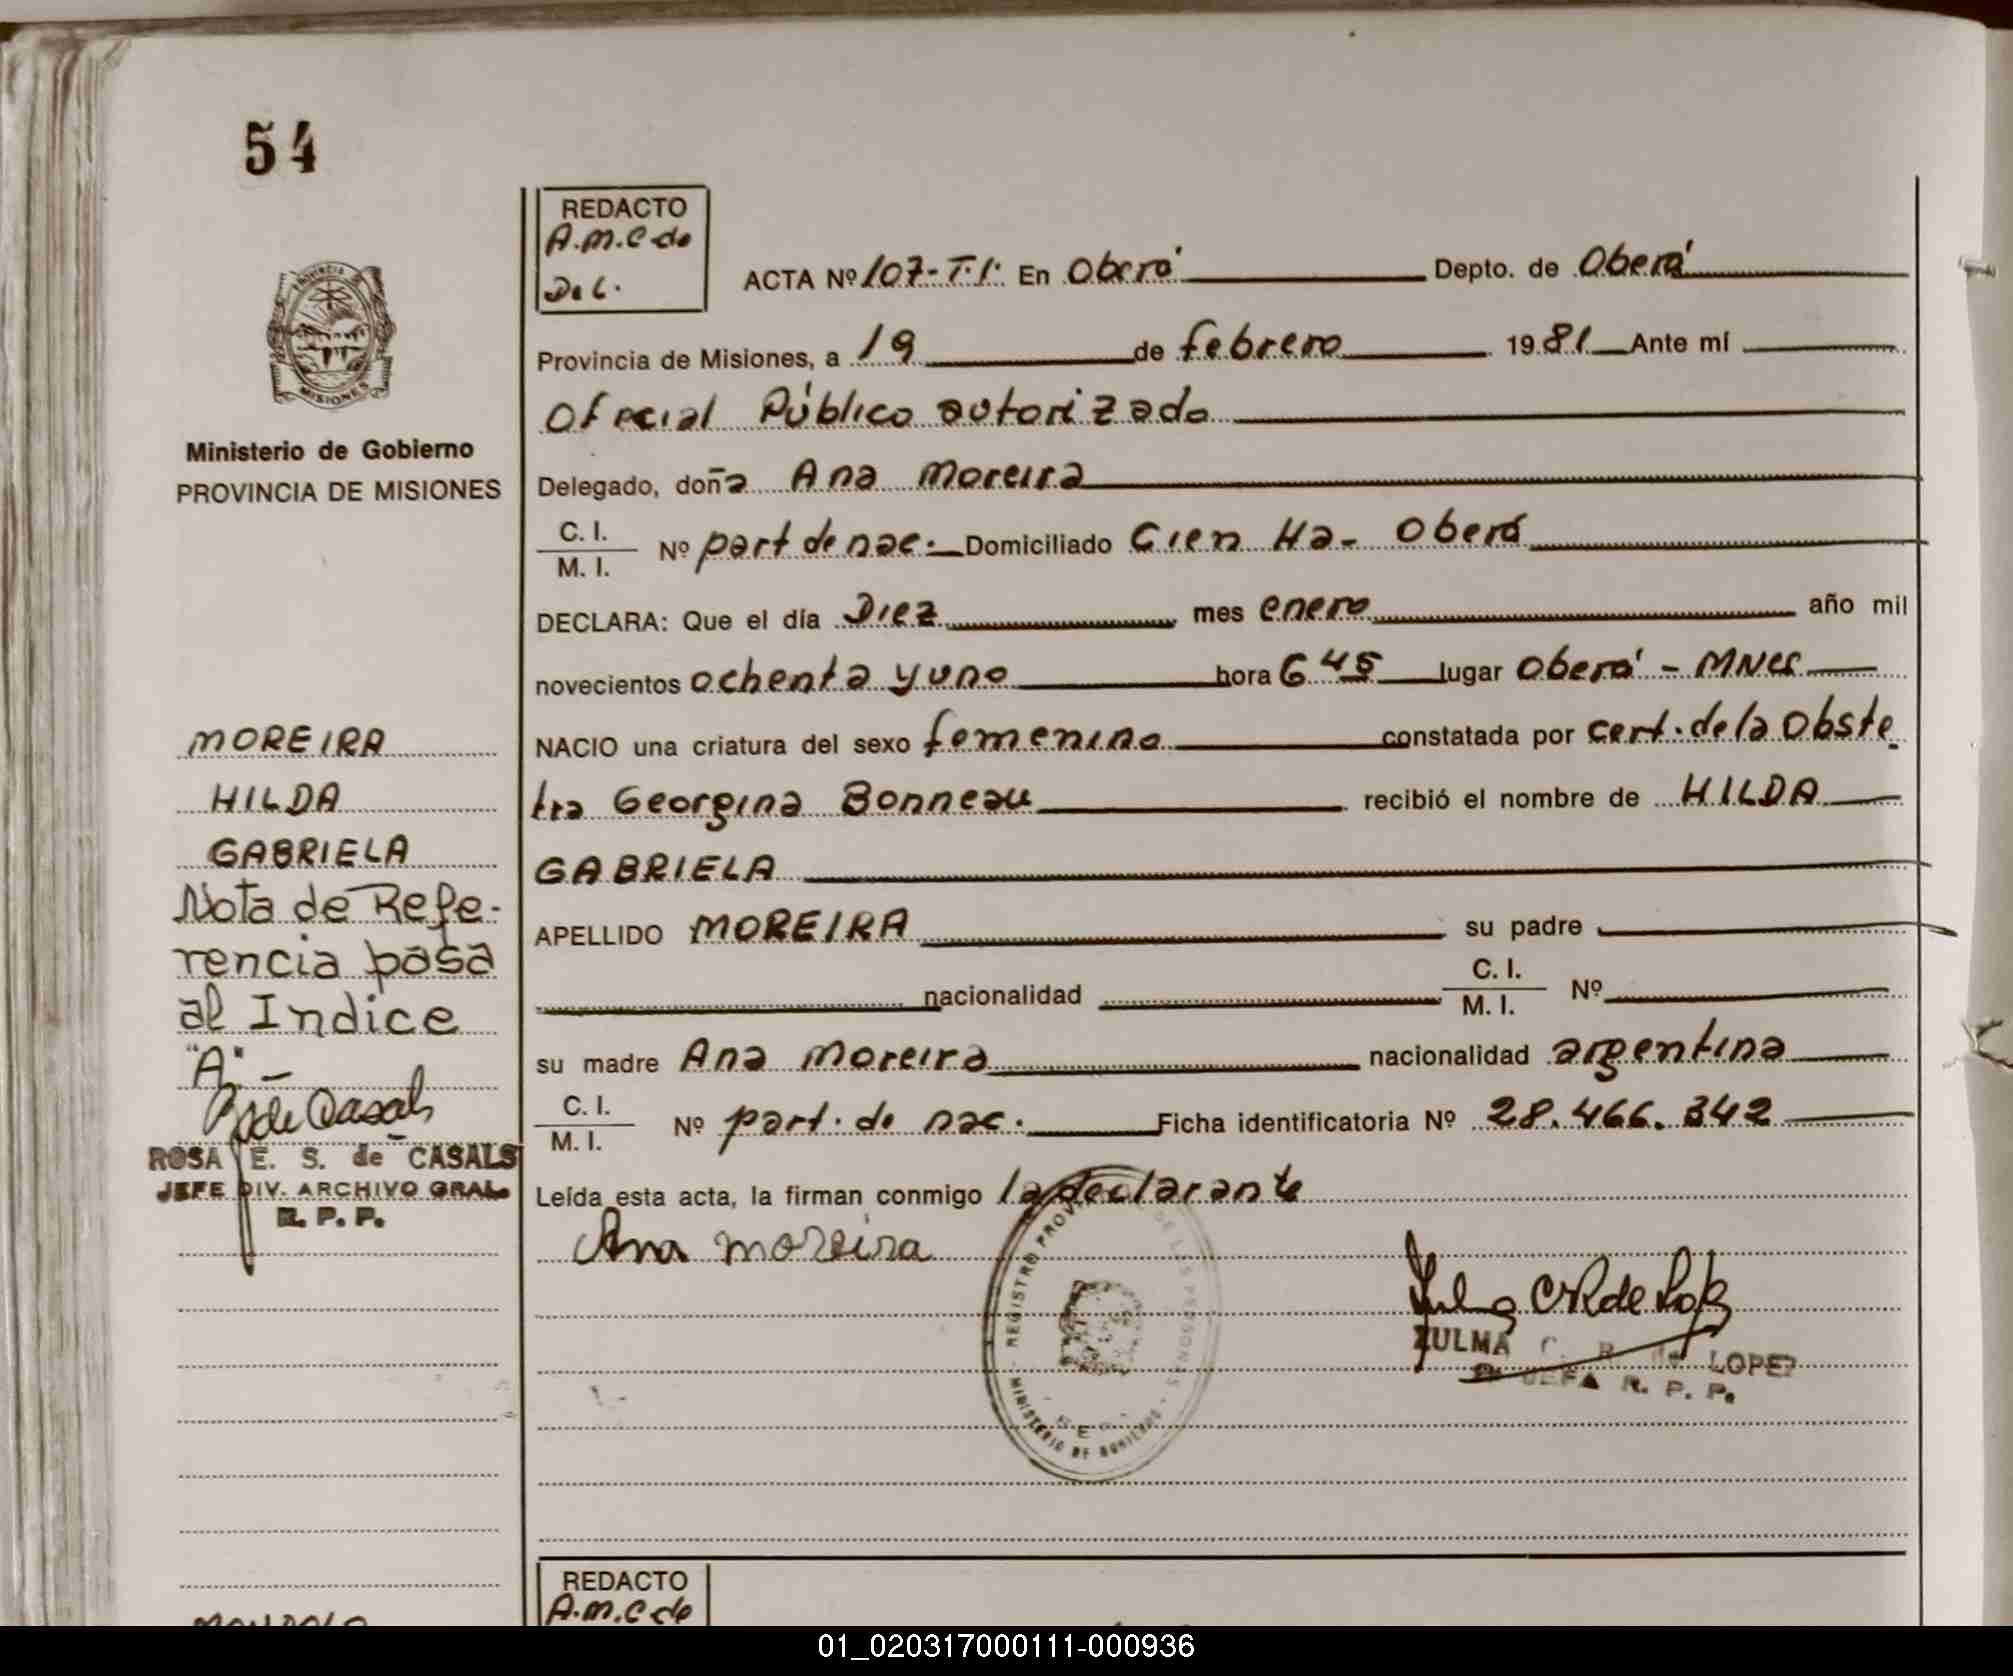 54
REDACTO
A.m.C de
De L.
ACTA Nº 107-T.1: En Oberá Depto. de Oberá
Provincia de Misiones, a 19 de febrero 1981 Ante mí
Oficial Público autorizado
Delegado, doña Ana Moreira
C. I.
M. I. Nº part de nac. Domiciliado Cien Ha- Oberá
DECLARA: Que el día Diez mes enero año mil
novecientos ochenta y uno hora 6 45 lugar Oberá - MNES
NACIO una criatura del sexo femenino constatada por cert. de la Obste
tra Georgina Bonneau recibió el nombre de HILDA
GABRIELA
APELLIDO MOREIRA su padre
nacionalidad C. I.
M. I. Nº
su madre Ana Moreira nacionalidad argentina
C. I.
M. I. Nº part. de nac. Ficha identificatoria Nº 28.466.342
Leída esta acta, la firman conmigo la declarante
Ana moreira
REGISTRO PROVINCIAL DE LAS PERSONAS
MINISTERIO DE GOBIERNO
ZULMA C. R. de LOPEZ
JEFA R. P. P.
PROVINCIA DE
MISIONES
Ministerio de Gobierno
PROVINCIA DE MISIONES
MOREIRA
HILDA
GABRIELA
Nota de Refe-
rencia pasa
al Indice
"A" -
R S de Casals
ROSA E. S. de CASALS
JEFE DIV. ARCHIVO GRAL.
R. P. P.
REDACTO
A.m.C de
01_020317000111-000936